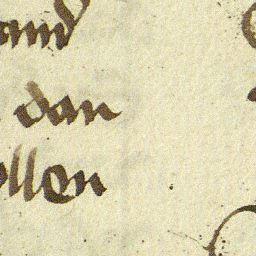 and
dan
ollen